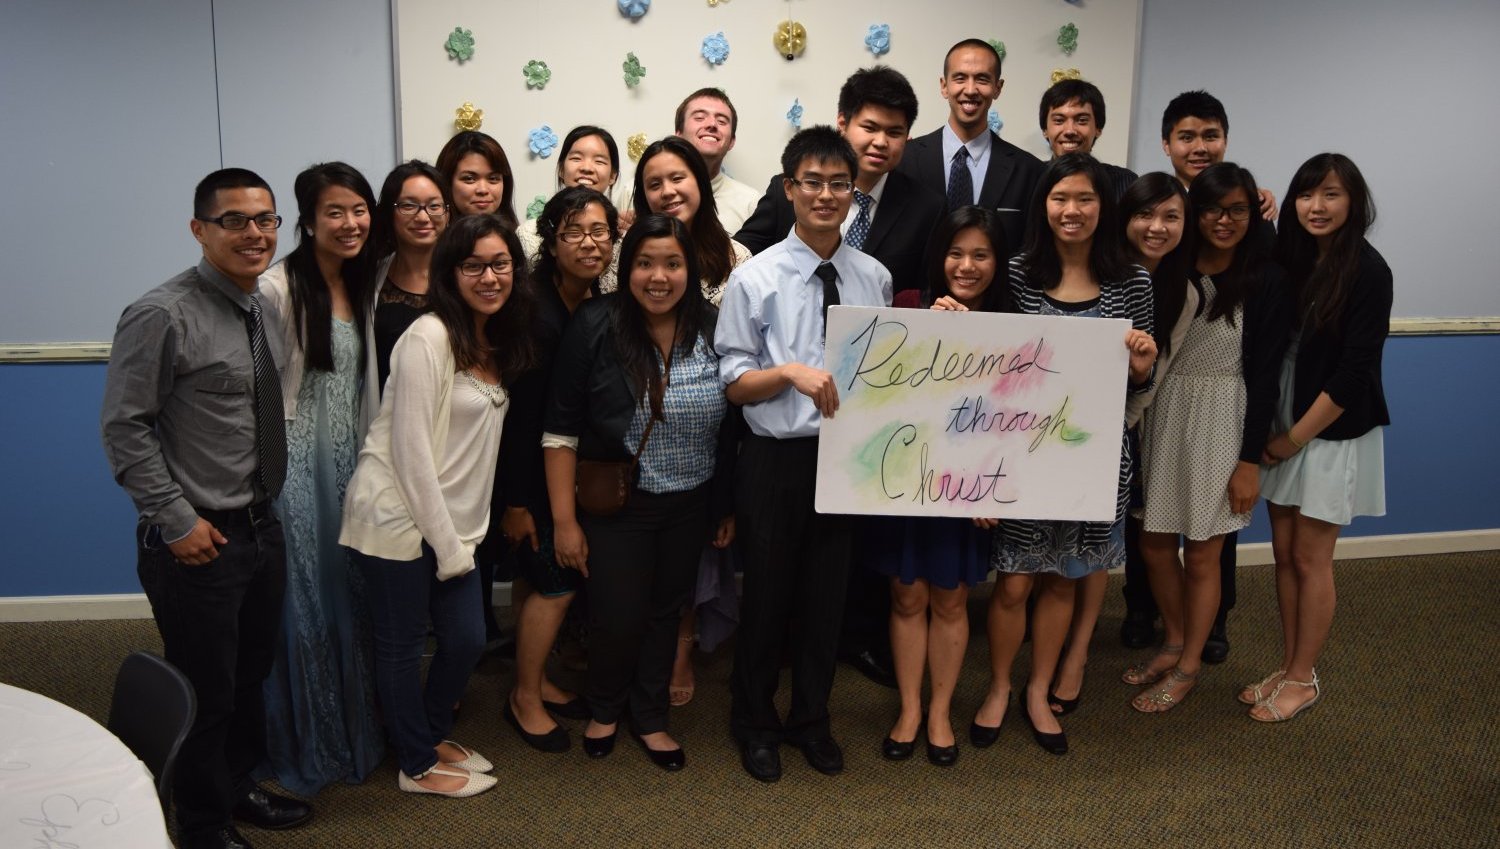 Redeemed
through
Christ